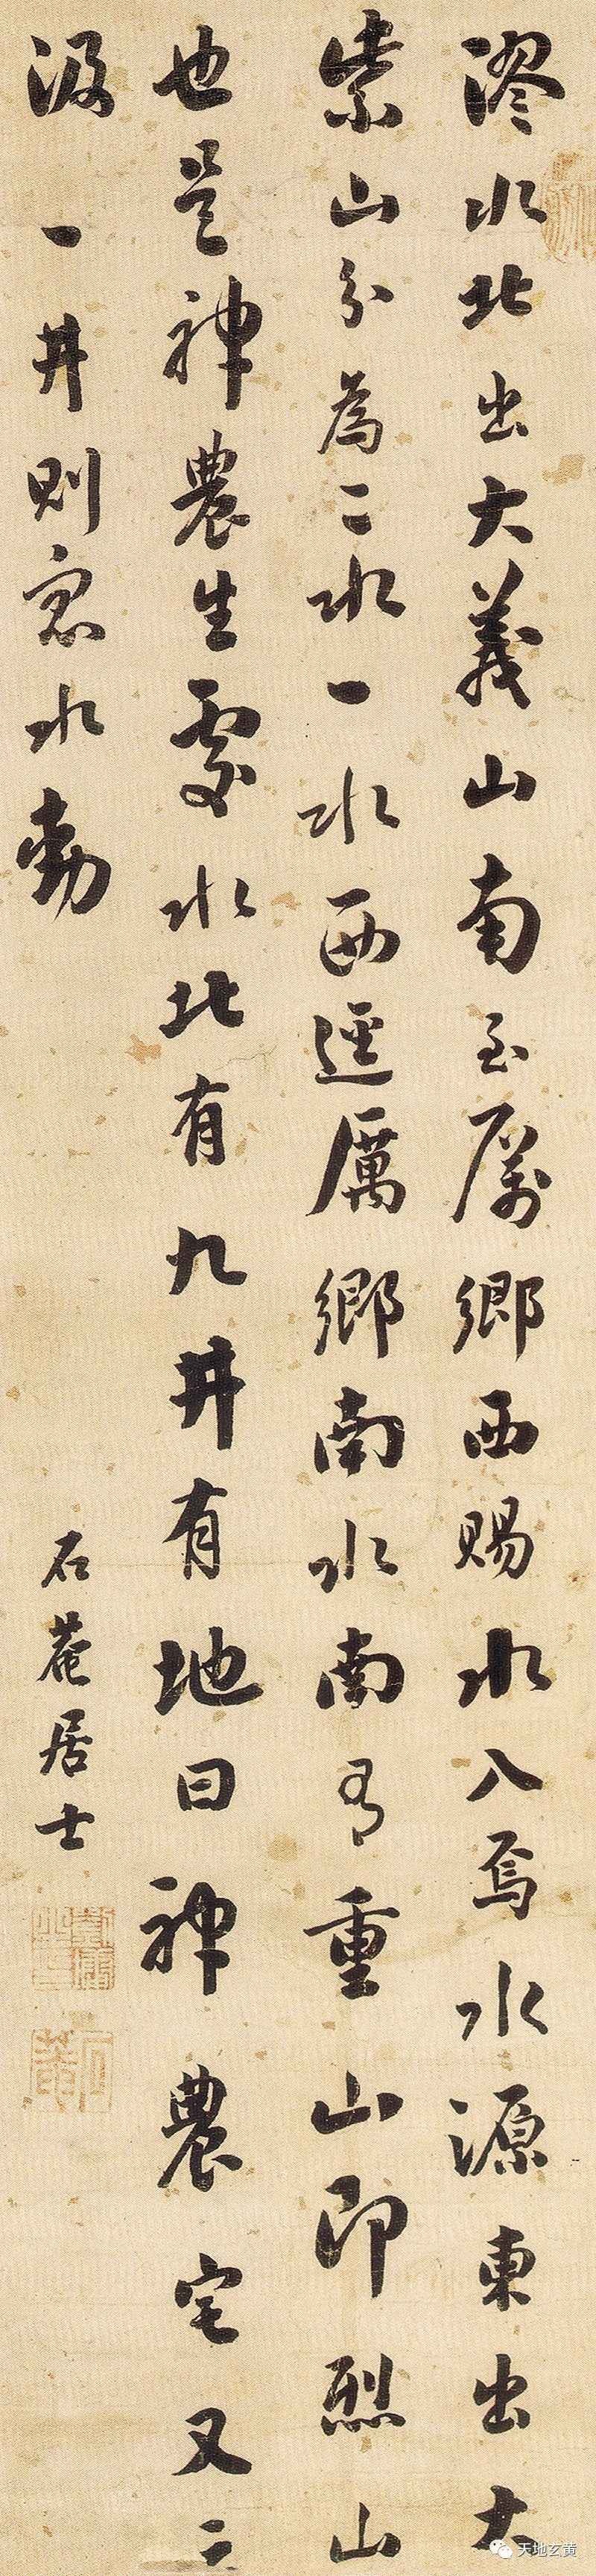 漻水北出大義山南至厲鄉西賜水入焉水源東出大
紫山分為二水一水西逕厲鄉南水南有重山即烈山
也是神農生處水北有九井有地曰神農宅又云
汲一井則衆水動
石菴居士
天地玄黄